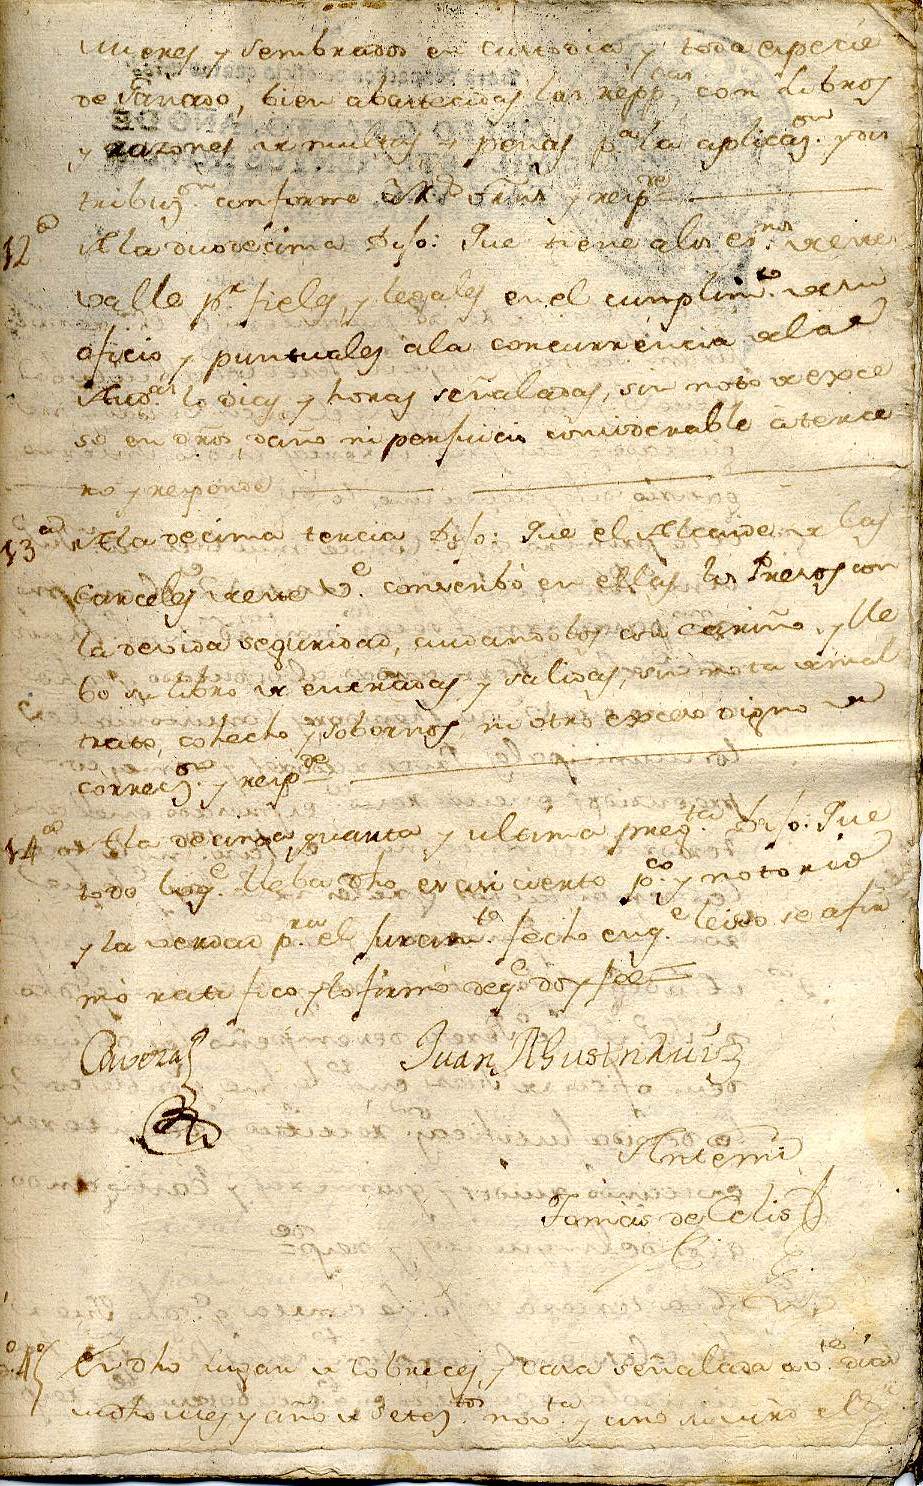 mieses y sembrados en custodia y toda especie
de Ganado, bien abastecidas las repp.cas, con Libros
y razones de multas y penas p.a la aplicaz.on y dis
tribuz.on conforme à R.s orñs y resp.de
12a A la duodecima Dijo: Que tiene a los es.nos de este
valle p.r fieles, y legales en el cumplim.to de su
oficio y puntuales à la concurrencia de la
Aud.a los Dias y horas señaladas, sin nota de exce
so en dr̃os daño ni perjuicio considerable à terce
ro y responde
13a A la decima tercia Dijo: Que el Alcaide de las
Carceles de este V.e conserbò en ellas los Presos con
la devida seguridad, cuidandolos con cariño, y lle
bo su libro de entradas y salidas, sin nota de mal
trato, cohecho y sobornos ni otro exceso digno de
correcz.on y resp.de
14a A la decima quarta y ultima preg.ta Dijo: Que
todo lo q.e lleba dho es asi cierto p.co y notorio
y la verdad p.a el juram.to fecho en q.e leido se afir
mò ratifico y lo firmó de q.e doy fee
Cavera
Juan Agustin Ruiz
Antemi
Tomás de Celis
En dho lugar de Cobreces, y casa señalada a v.te dias
dho mes y año de Setez.tos nov.ta y uno su mrd el S.r